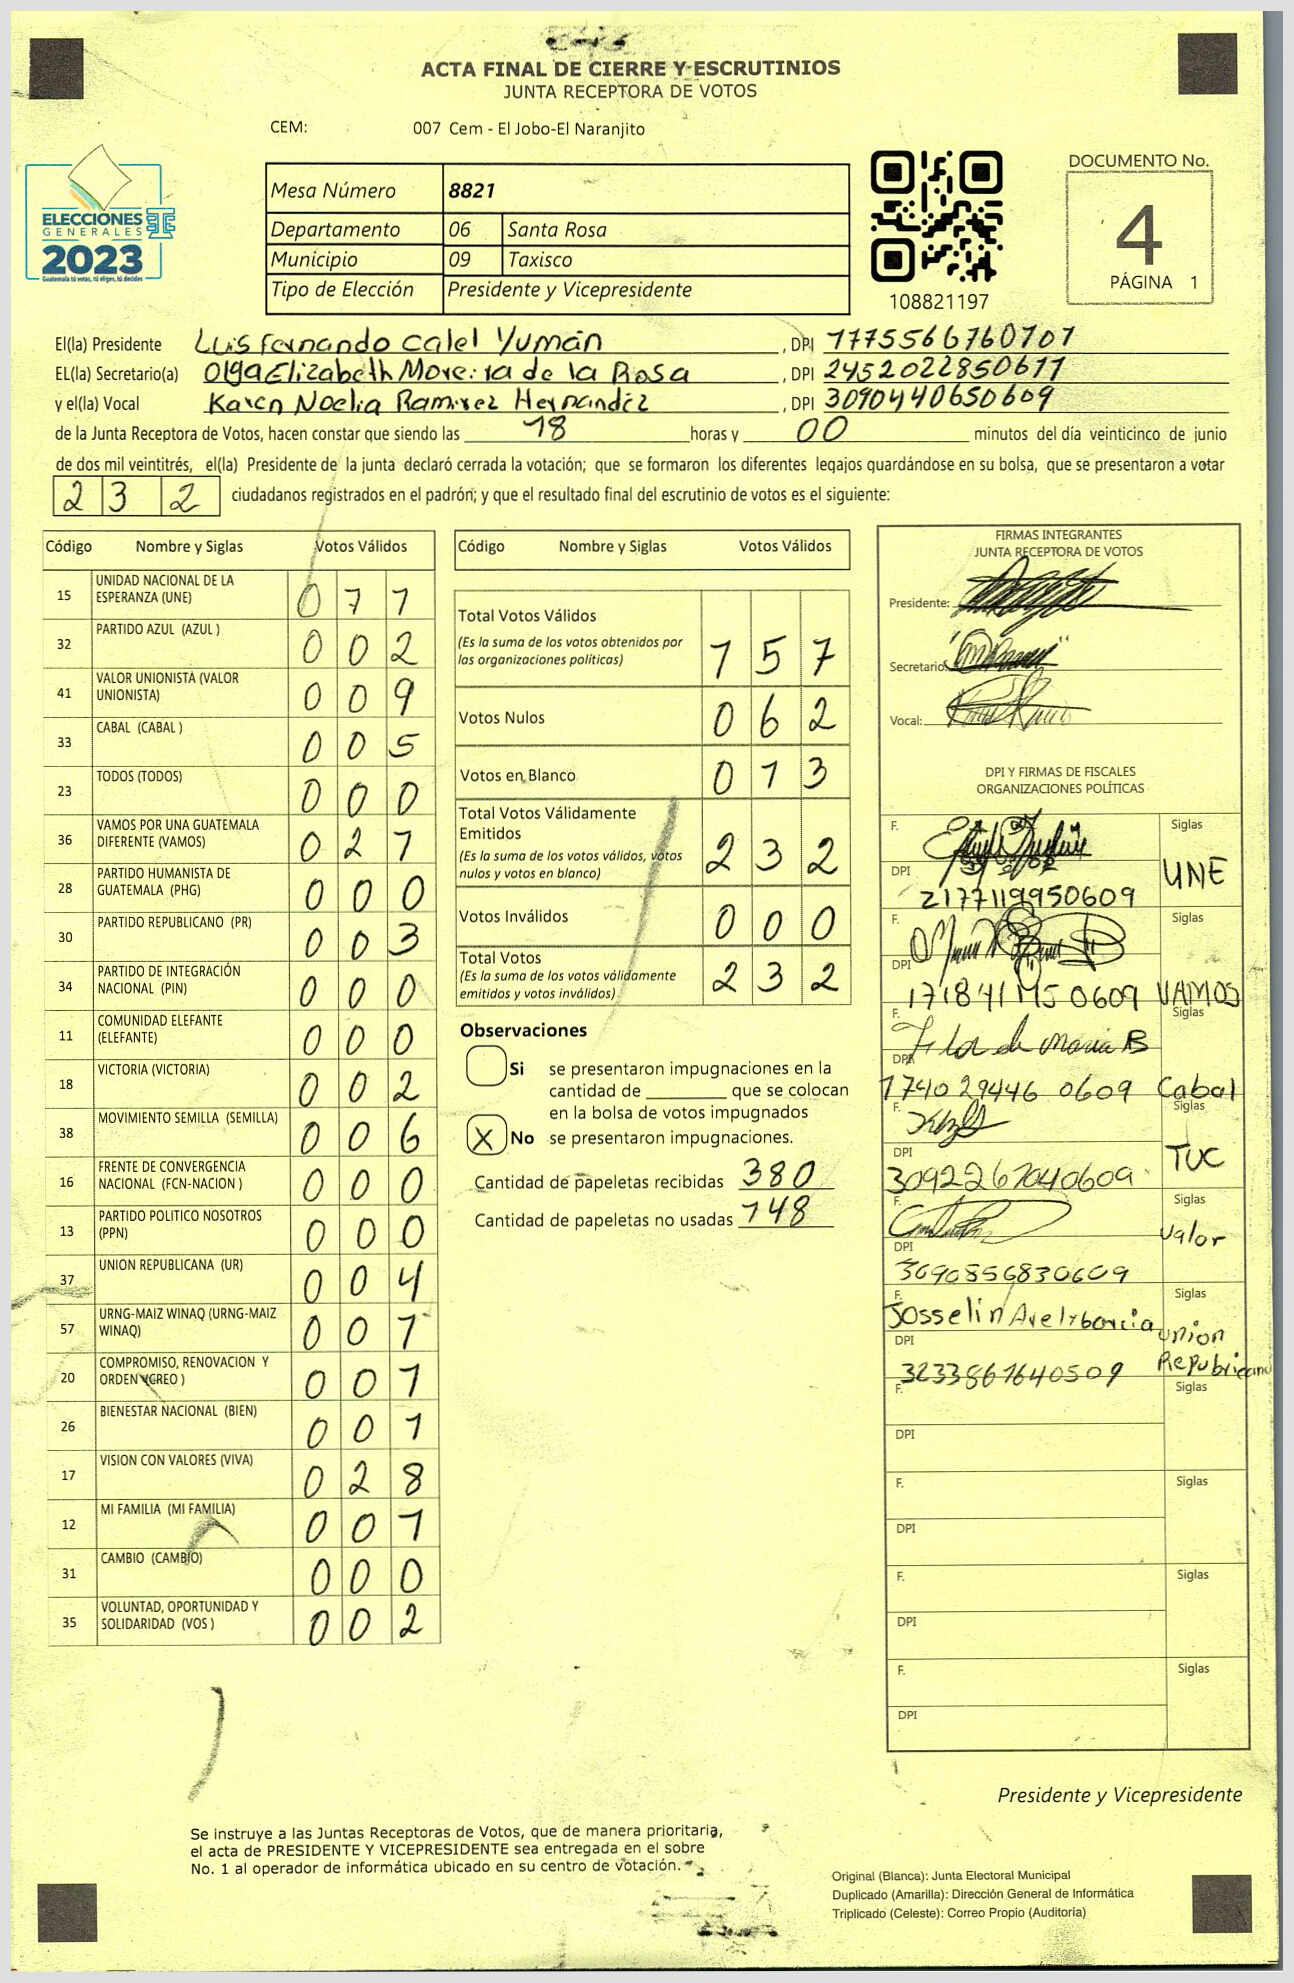 ACTA FINAL DE CIERRE Y ESCRUTINIOS
JUNTA RECEPTORA DE VOTOS
CEM: 007 Cem - El Jobo-El Naranjito
ELECCIONES
GENERALES
2023
Guatemala tú votas, tú eliges, tú decides
Mesa Número 8821
Departamento 06 Santa Rosa
Municipio 09 Taxisco
Tipo de Elección Presidente y Vicepresidente
108821197
DOCUMENTO No.
4
PÁGINA 1
El(la) Presidente Luis Fernando Calel Yumán , DPI 1775566760101
EL(la) Secretario(a) Olga Elizabeth Moreira de la Rosa , DPI 2452022850611
y el(la) Vocal Karen Noelia Ramirez Hernández , DPI 3090440650609
de la Junta Receptora de Votos, hacen constar que siendo las 18 horas y 00 minutos del día veinticinco de junio
de dos mil veintitrés, el(la) Presidente de la junta declaró cerrada la votación; que se formaron los diferentes legajos guardándose en su bolsa, que se presentaron a votar
2 3 2 ciudadanos registrados en el padrón; y que el resultado final del escrutinio de votos es el siguiente:
Código Nombre y Siglas Votos Válidos
15 UNIDAD NACIONAL DE LA ESPERANZA (UNE) 0 7 1
32 PARTIDO AZUL (AZUL ) 0 0 2
41 VALOR UNIONISTA (VALOR UNIONISTA) 0 0 9
33 CABAL (CABAL ) 0 0 5
23 TODOS (TODOS) 0 0 0
36 VAMOS POR UNA GUATEMALA DIFERENTE (VAMOS) 0 2 1
28 PARTIDO HUMANISTA DE GUATEMALA (PHG) 0 0 0
30 PARTIDO REPUBLICANO (PR) 0 0 3
34 PARTIDO DE INTEGRACIÓN NACIONAL (PIN) 0 0 0
11 COMUNIDAD ELEFANTE (ELEFANTE) 0 0 0
18 VICTORIA (VICTORIA) 0 0 2
38 MOVIMIENTO SEMILLA (SEMILLA) 0 0 6
16 FRENTE DE CONVERGENCIA NACIONAL (FCN-NACION ) 0 0 0
13 PARTIDO POLITICO NOSOTROS (PPN) 0 0 0
37 UNION REPUBLICANA (UR) 0 0 4
57 URNG-MAIZ WINAQ (URNG-MAIZ WINAQ) 0 0 1
20 COMPROMISO, RENOVACION Y ORDEN (CREO ) 0 0 1
26 BIENESTAR NACIONAL (BIEN) 0 0 1
17 VISION CON VALORES (VIVA) 0 2 8
12 MI FAMILIA (MI FAMILIA) 0 0 1
31 CAMBIO (CAMBIO) 0 0 0
35 VOLUNTAD, OPORTUNIDAD Y SOLIDARIDAD (VOS ) 0 0 2
Código Nombre y Siglas Votos Válidos
Total Votos Válidos
(Es la suma de los votos obtenidos por las organizaciones políticas) 1 5 7
Votos Nulos 0 6 2
Votos en Blanco 0 1 3
Total Votos Válidamente Emitidos
(Es la suma de los votos válidos, votos nulos y votos en blanco) 2 3 2
Votos Inválidos 0 0 0
Total Votos
(Es la suma de los votos válidamente emitidos y votos inválidos) 2 3 2
Observaciones
Si se presentaron impugnaciones en la
cantidad de ________ que se colocan
en la bolsa de votos impugnados
X No se presentaron impugnaciones.
Cantidad de papeletas recibidas 380
Cantidad de papeletas no usadas 148
FIRMAS INTEGRANTES
JUNTA RECEPTORA DE VOTOS
Presidente:
Secretario
Vocal:
DPI Y FIRMAS DE FISCALES
ORGANIZACIONES POLÍTICAS
F. Siglas
DPI 2177119950609 UNE
F. Siglas
DPI VAMOS
F. Flor de Maria B Siglas
DPI 1740 29446 0609 Cabal
F. Siglas
DPI 3092267040609 TUC
F. Siglas
DPI 3090856830609 Valor
F. Josselin Siglas
DPI 3233861640509 Union Republicana
F. Siglas
DPI
F. Siglas
DPI
F. Siglas
DPI
F. Siglas
DPI
Presidente y Vicepresidente
Se instruye a las Juntas Receptoras de Votos, que de manera prioritaria,
el acta de PRESIDENTE Y VICEPRESIDENTE sea entregada en el sobre
No. 1 al operador de informática ubicado en su centro de votación.
Original (Blanca): Junta Electoral Municipal
Duplicado (Amarilla): Dirección General de Informática
Triplicado (Celeste): Correo Propio (Auditoría)